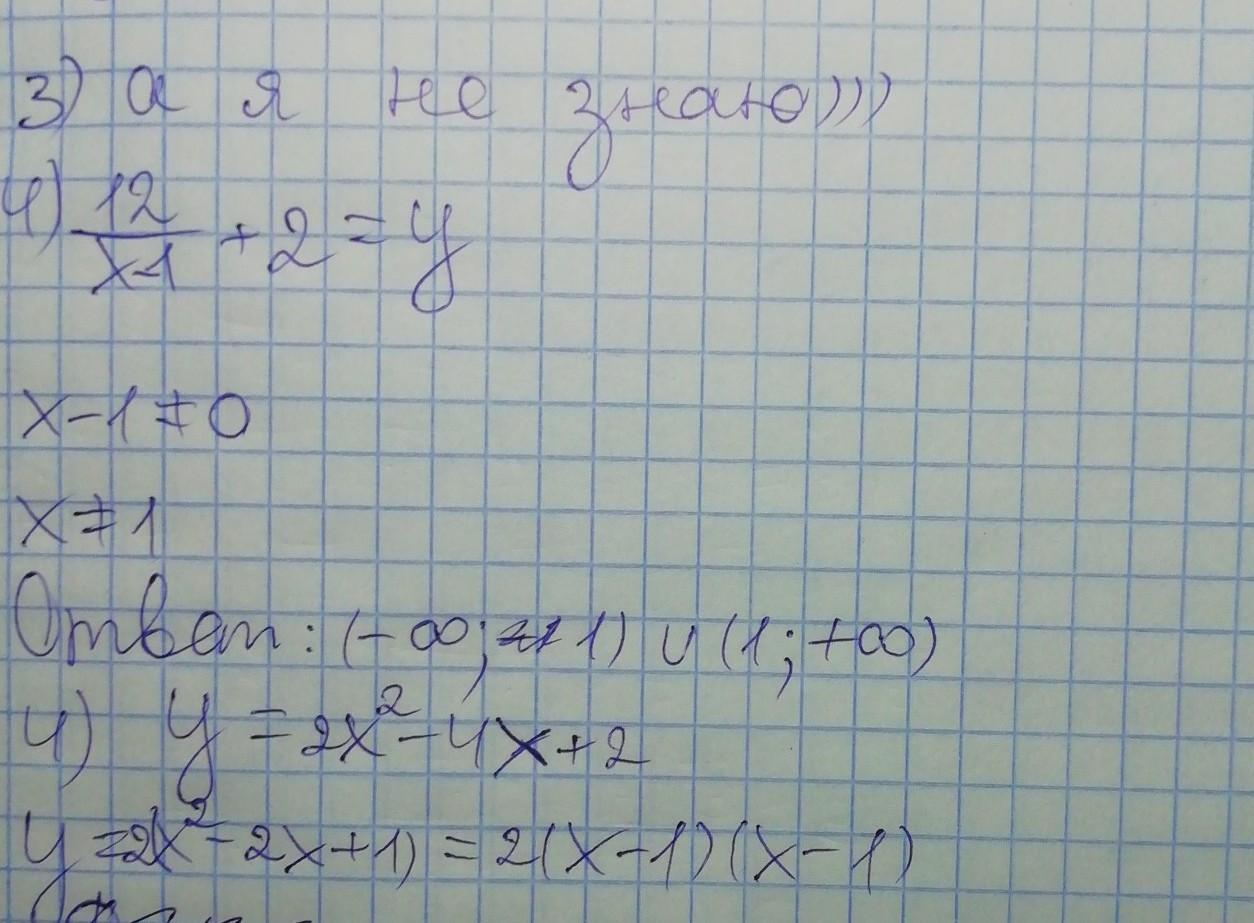 3) а я не знаю)))
4) 12/(x-1) + 2 = y
x-1≠0
x≠1
Ответ: (-∞; 1) ∪ (1; +∞)
4) y = 2x²-4x+2
y=2(x²-2x+1) = 2(x-1)(x-1)